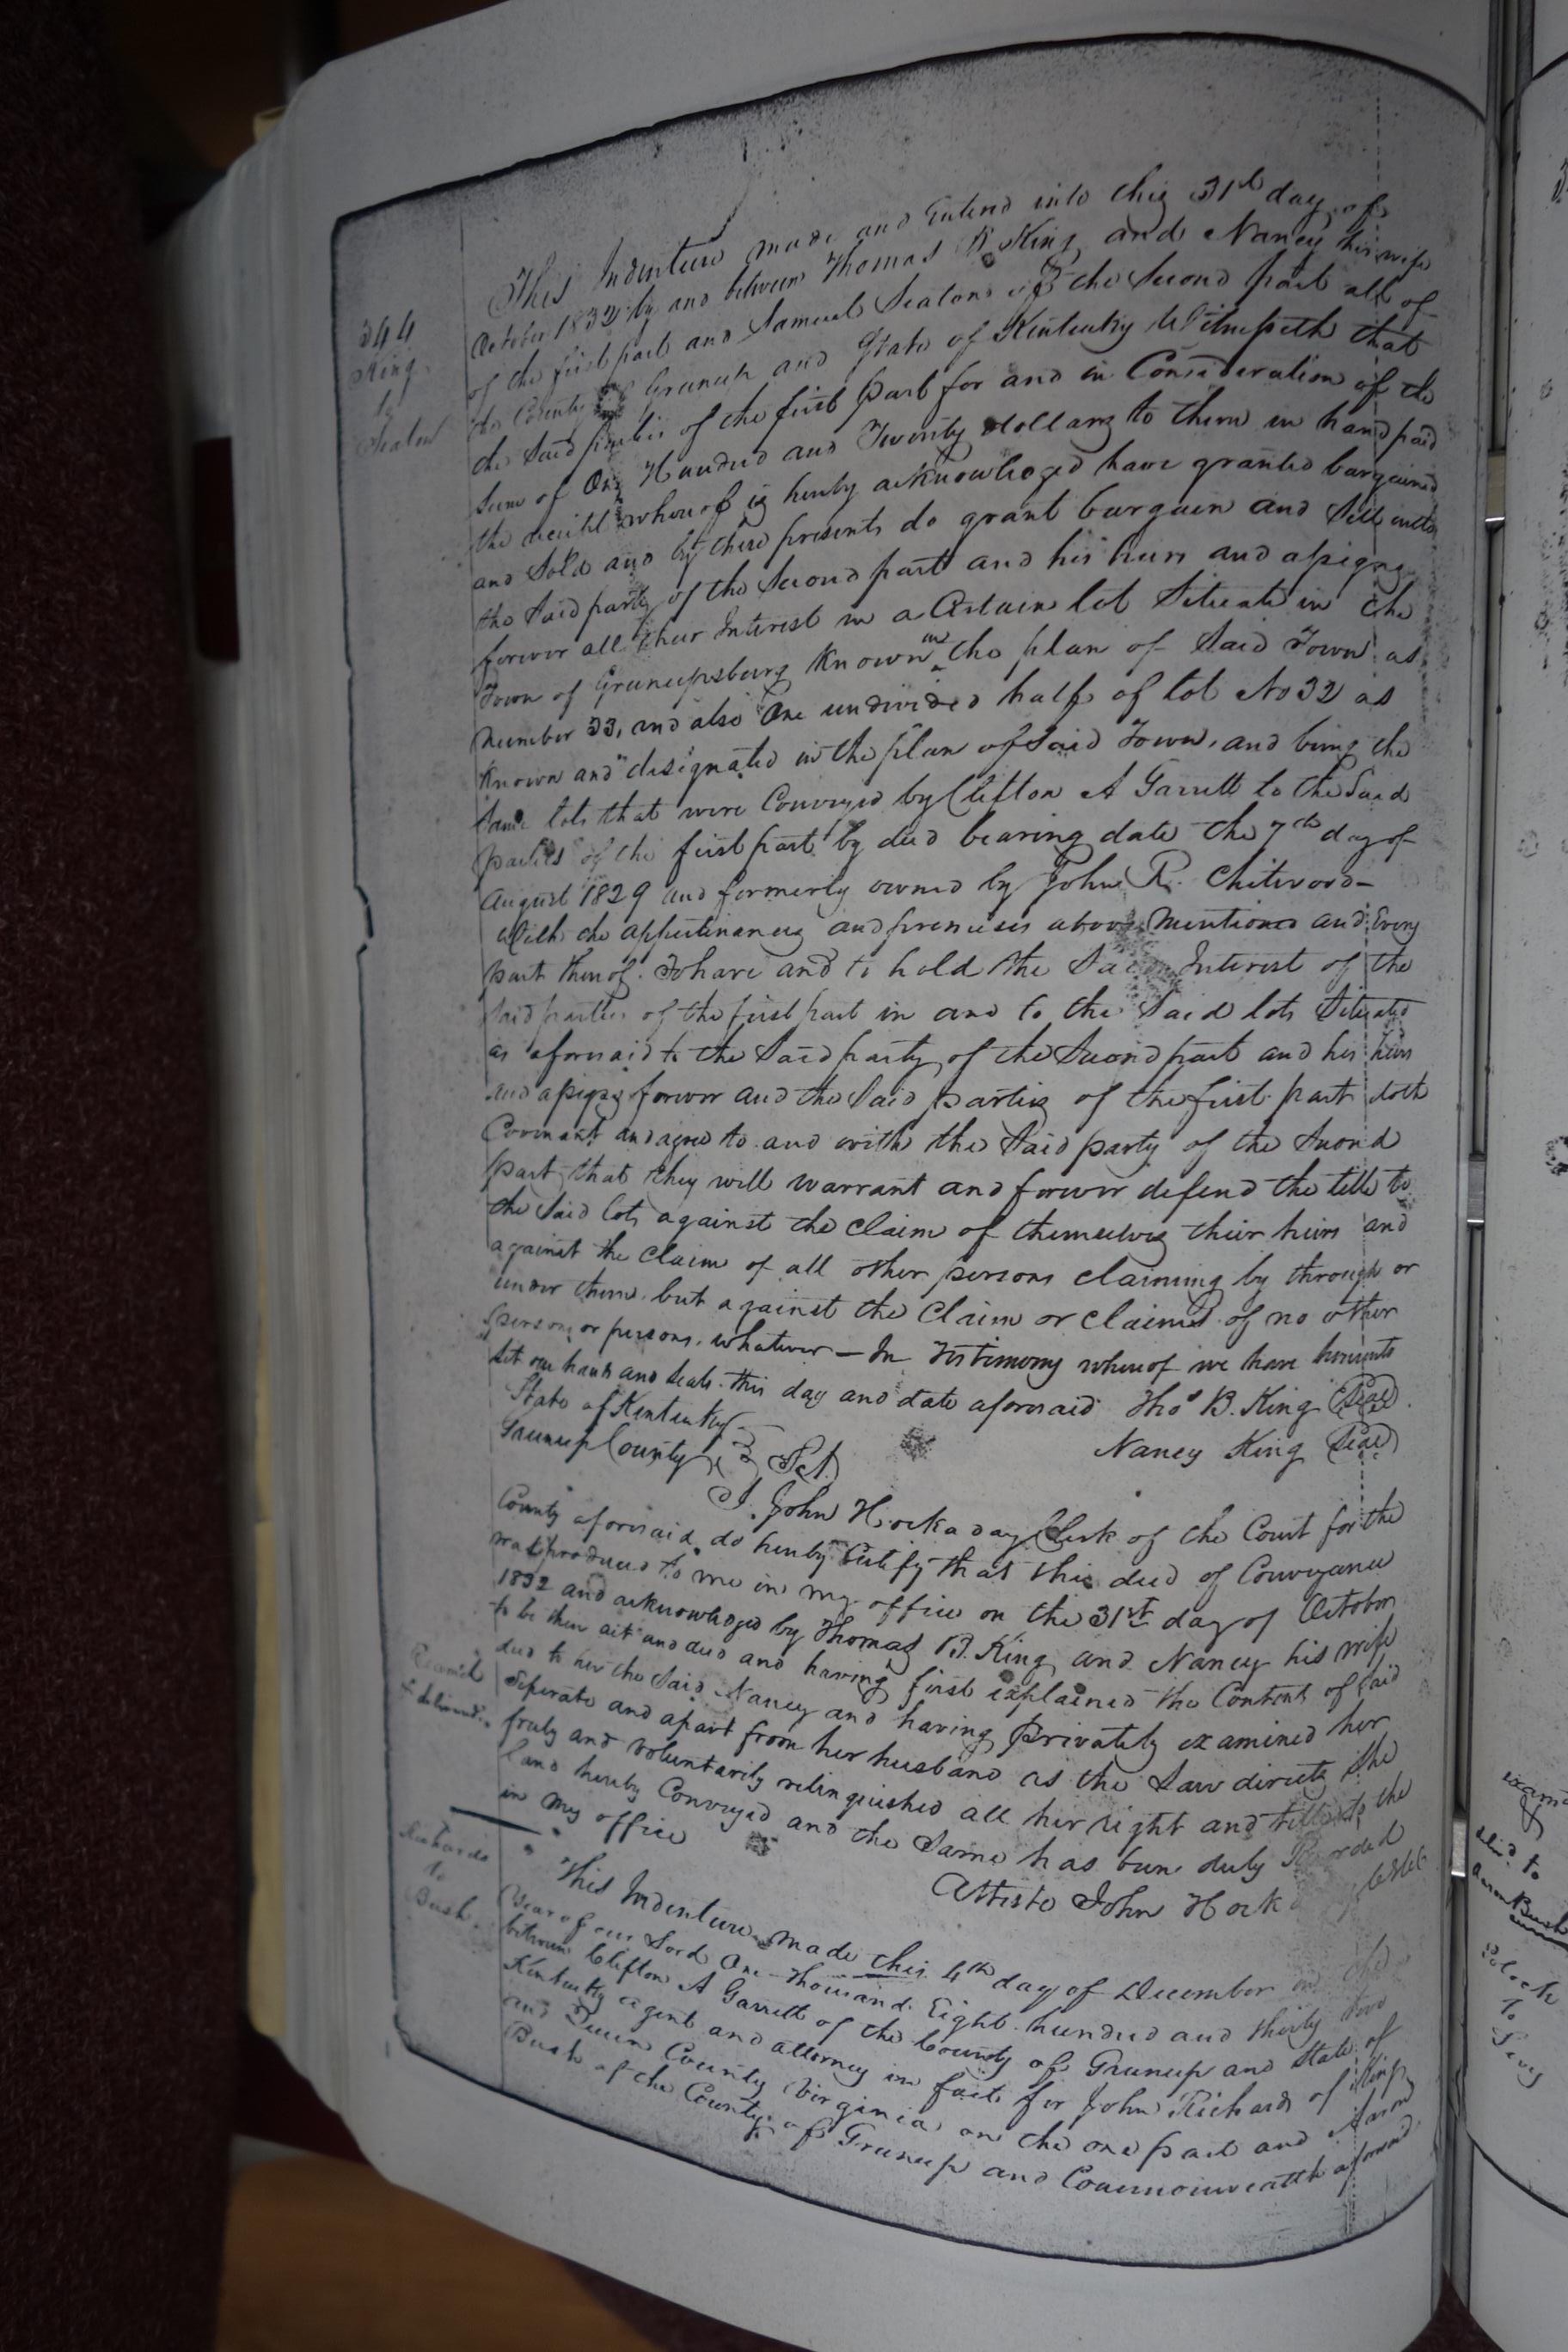 344
King
to
Seaton
This Indenture made and Entered into this 31st day of
October 1832 by and between Thomas B. King and Nancy his wife
of the first part and Samuel Seaton of the Second part all of
the County of Greenup and State of Kentucky Witnesseth that
the Said parties of the first part for and in Consideration of the
Sum of One Hundred and Twenty dollars to them in hand paid
the receipt whereof is hereby acknowledged have granted bargained
and Sold and by these presents do grant bargain and Sell unto
the Said party of the Second part and his heirs and assigns
forever all their Interest in a Certain lot Situate in the
Town of Greenupsburg Known in the plan of Said Town as
Number 33, and also One undivided half of lot No 32 as
Known and designated in the plan of Said Town, and being the
Same lots that were Conveyed by Clifton A Garrett to the Said
parties of the first part by deed bearing date the 7th day of
August 1829 and formerly owned by John R. Chitwood—
With the appertinances and premises above Mentioned and Every
part thereof. To have and to hold the Said Interest of the
Said parties of the first part in and to the Said lots Situated
as aforesaid to the Said party of the Second part and his heirs
and assigns forever and the Said parties of the first part doth
Covenant and agree to and with the Said party of the Second
part that they will warrant and forever defend the title to
the Said lots against the Claim of themselves their heirs and
against the Claim of all other persons claiming by through or
under them, but against the Claim or claims of no other
person or persons whatever — In Testimony whereof we have hereunto
Set our hands and Seals this day and date aforesaid Thos B. King (Seal)
State of Kentucky
Nancy King (Seal)
Greenup County } Sct
I. John Hockaday Clerk of the Court for the
County aforesaid, do hereby Certify that this deed of Conveyance
was produced to me in my office on the 31st day of October
1832 and acknowledged by Thomas B. King and Nancy his wife
to be their act and deed and having first explained the Contents of Said
deed to her the Said Nancy and having Privately examined her
Seperate and apart from her husband as the Law directs She
freely and voluntarily relinquished all her right and title to the
land hereby Conveyed and the Same has been duly Recorded
in my office
Attest John Hock
Examd
& delivered
Richards
to
Bush
This Indenture made this 4th day of December in the
Year of our Lord One Thousand Eight hundred and thirty two
between Clifton A Garrett of the County of Greenup and State of
Kentucky agent and attorney in fact for John Richards of King
and Queen County Virginia on the one part and Aaron
Bush of the County of Greenup and Commonwealth aforesaid
exam
deliv. to
Aaron Bush
To